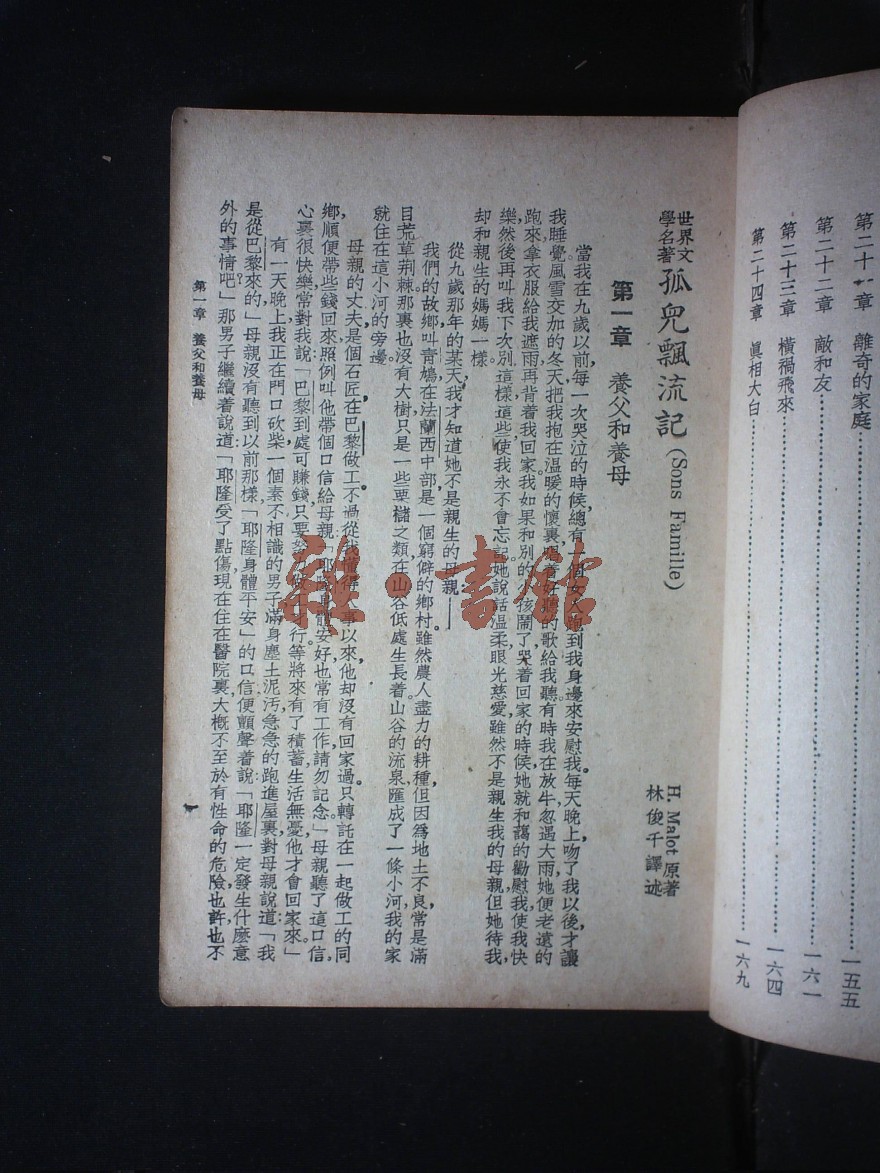 第二十一章 離奇的家庭…………一五五
第二十二章 敵和友…………一六一
第二十三章 橫禍飛來…………一六四
第二十四章 眞相大白…………一六九
世界文學名著 孤兒飄流記 (Sons Famille)
H. Malot 原著
林俊千譯述
第一章 養父和養母
當我在九歲以前,每一次哭泣的時候,總有一個女人跑到我身邊來安慰我,每天晚上吻了我以後,才讓
我睡覺,風雪交加的冬天,把我抱在溫暖的懷裏,唱着好聽的歌給我聽,有時我在放牛,忽遇大雨,她便老遠的
跑來拿衣服給我遮雨,再背着我回家,我如果和別的小孩鬧了,哭着回家的時候,她就和藹的勸慰我,使我快
樂,然後再叫我下次別這樣,這些使我永不會忘記,她說話溫柔,眼光慈愛,雖然不是親生我的母親,但她待我,
却和親生的媽媽一樣。
從九歲那年的某天,我才知道她不是親生的母親——
我們的故鄉,叫靑鳩,在法蘭西中部,是一個窮僻的鄉村,雖然農人盡力的耕種,但因爲地土不良,常是滿
目荒草荆棘,那裏也沒有大樹,只是一些栗櫧之類,在山谷低處生長着,山谷的流泉,匯成了一條小河,我的家
就住在這小河的旁邊。
母親的丈夫,是個石匠,在巴黎做工,不過從我懂得人事以來,他却沒有回家過。只轉託在一起做工的同
鄉,順便帶些錢回來,照例叫他帶個口信給母親「耶隆身體安好,也常有工作,請勿記念」母親聽了這口信,
心裏很快樂,常對我說「巴黎到處可賺錢,只要努力做工才行,等將來有了積蓄,生活無憂,他才會回家來」
有一天晚上,我正在門口砍柴,一個素不相識的男子,滿身塵土泥汚,急急的跑進屋裏,對母親說道「我
是從巴黎來的」母親沒有聽到以前那樣,「耶隆身體平安」的口信,便顫聲着說「耶隆一定發生什麼意
外的事情吧?」那男子繼續着說道「耶隆受了點傷,現在住在醫院裏,大槪不至於有性命的危險,也許也不
第一章 養父和養母
雜·書館